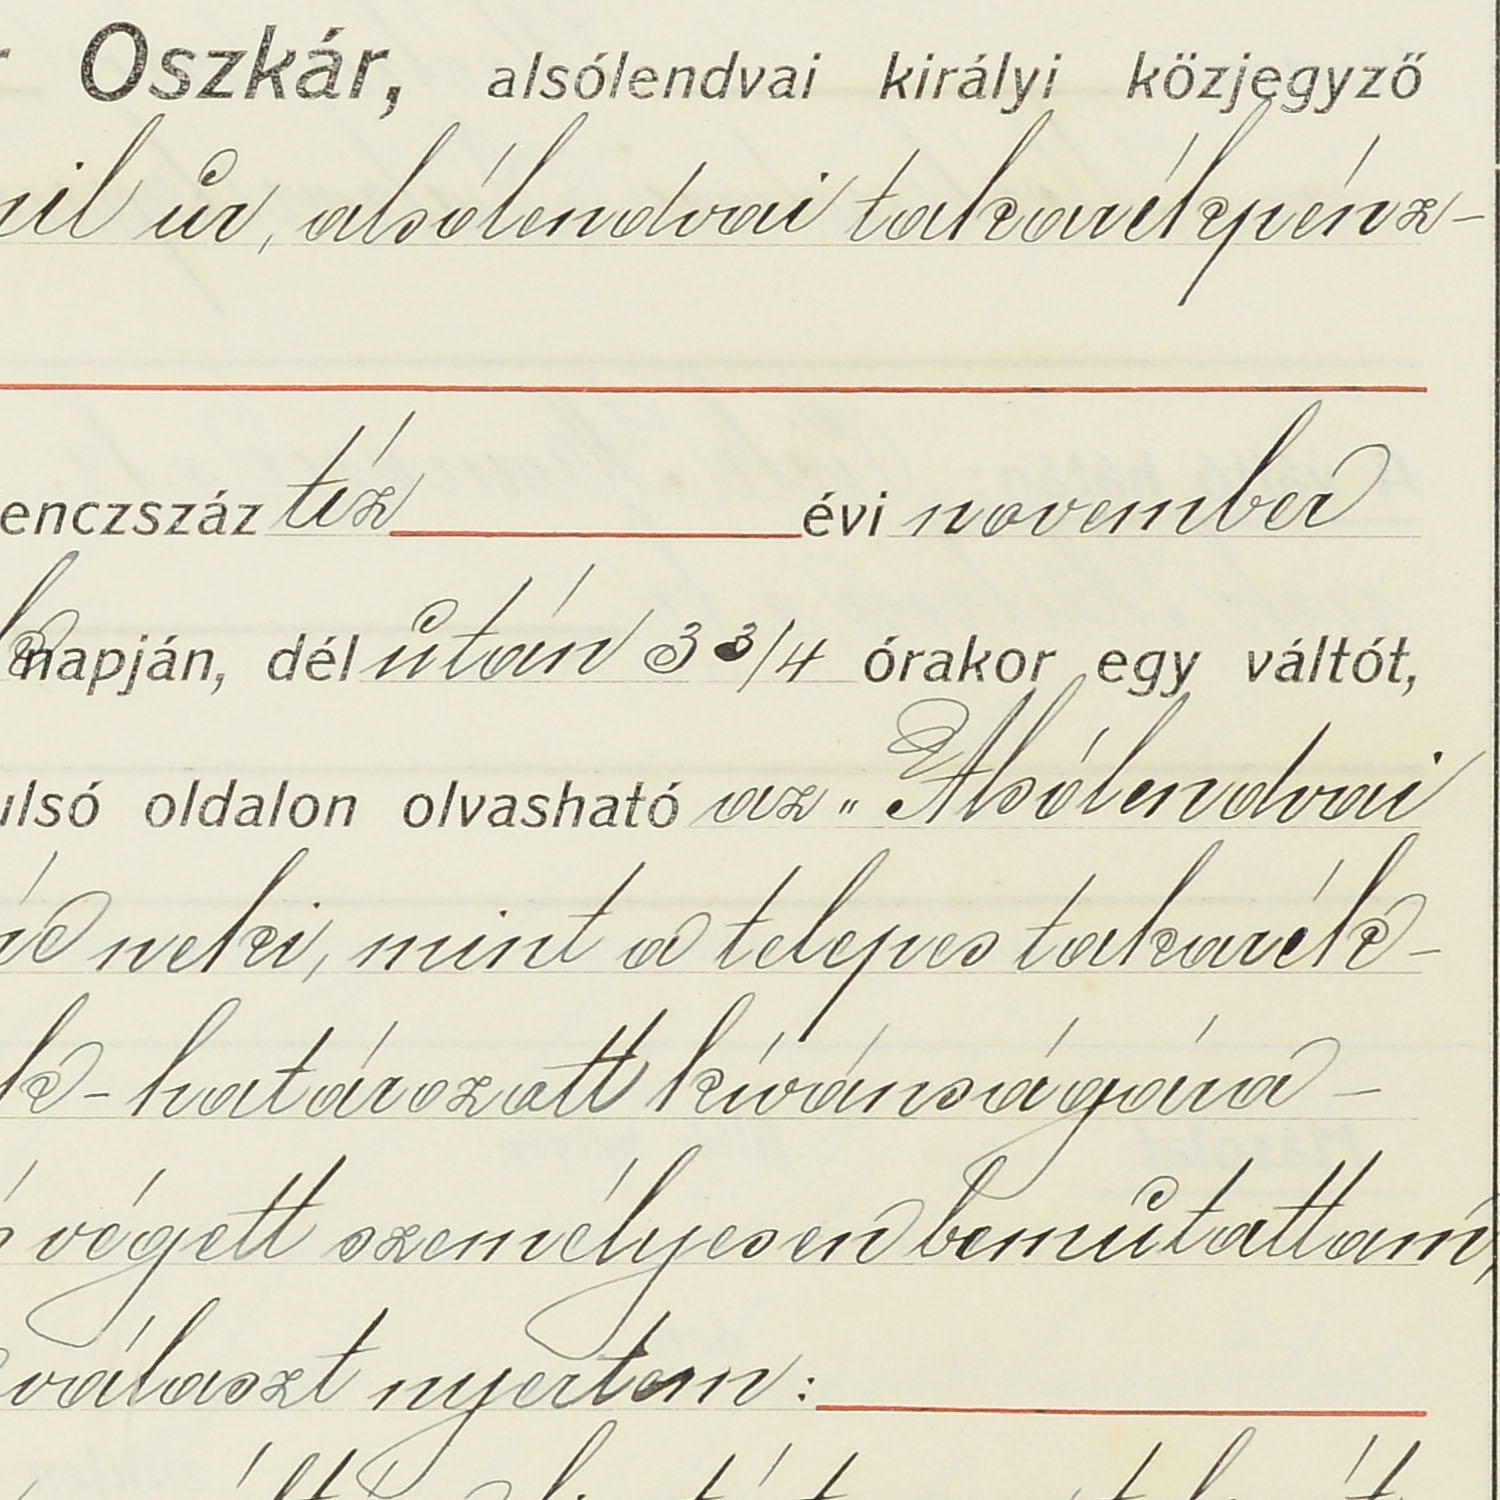 r Oszkár, alsólendvai királyi közjegyző
úr, alsólendvai takarékpénz-
enczszáz tíz évi november
napján, dél után 3 3/4 órakor egy váltót,
ulsó oldalon olvasható az „Alsólendvai
neki, mint a telepes takarék-
k - határozott kívánságára -
végett személyesen bemutattam,
választ nyertem: